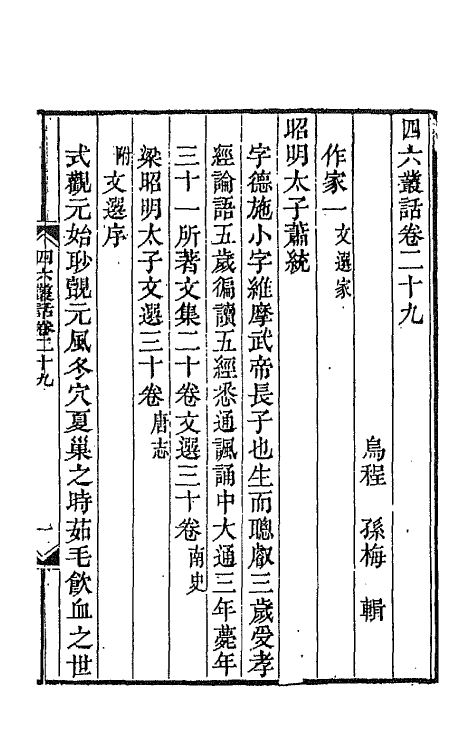 四六叢話卷二十九
烏程 孫梅 輯
作家一 文選家
昭明太子蕭統
字德施小字維摩武帝長子也生而聰叡三歲受孝
經論語五歲徧讀五經悉通諷誦中大通三年薨年
三十一所著文集二十卷文選三十卷南史
梁昭明太子文選三十卷唐志
附文選序
式觀元始眇覿元風冬穴夏巢之時茹毛飲血之世
四六叢話卷二十九 一